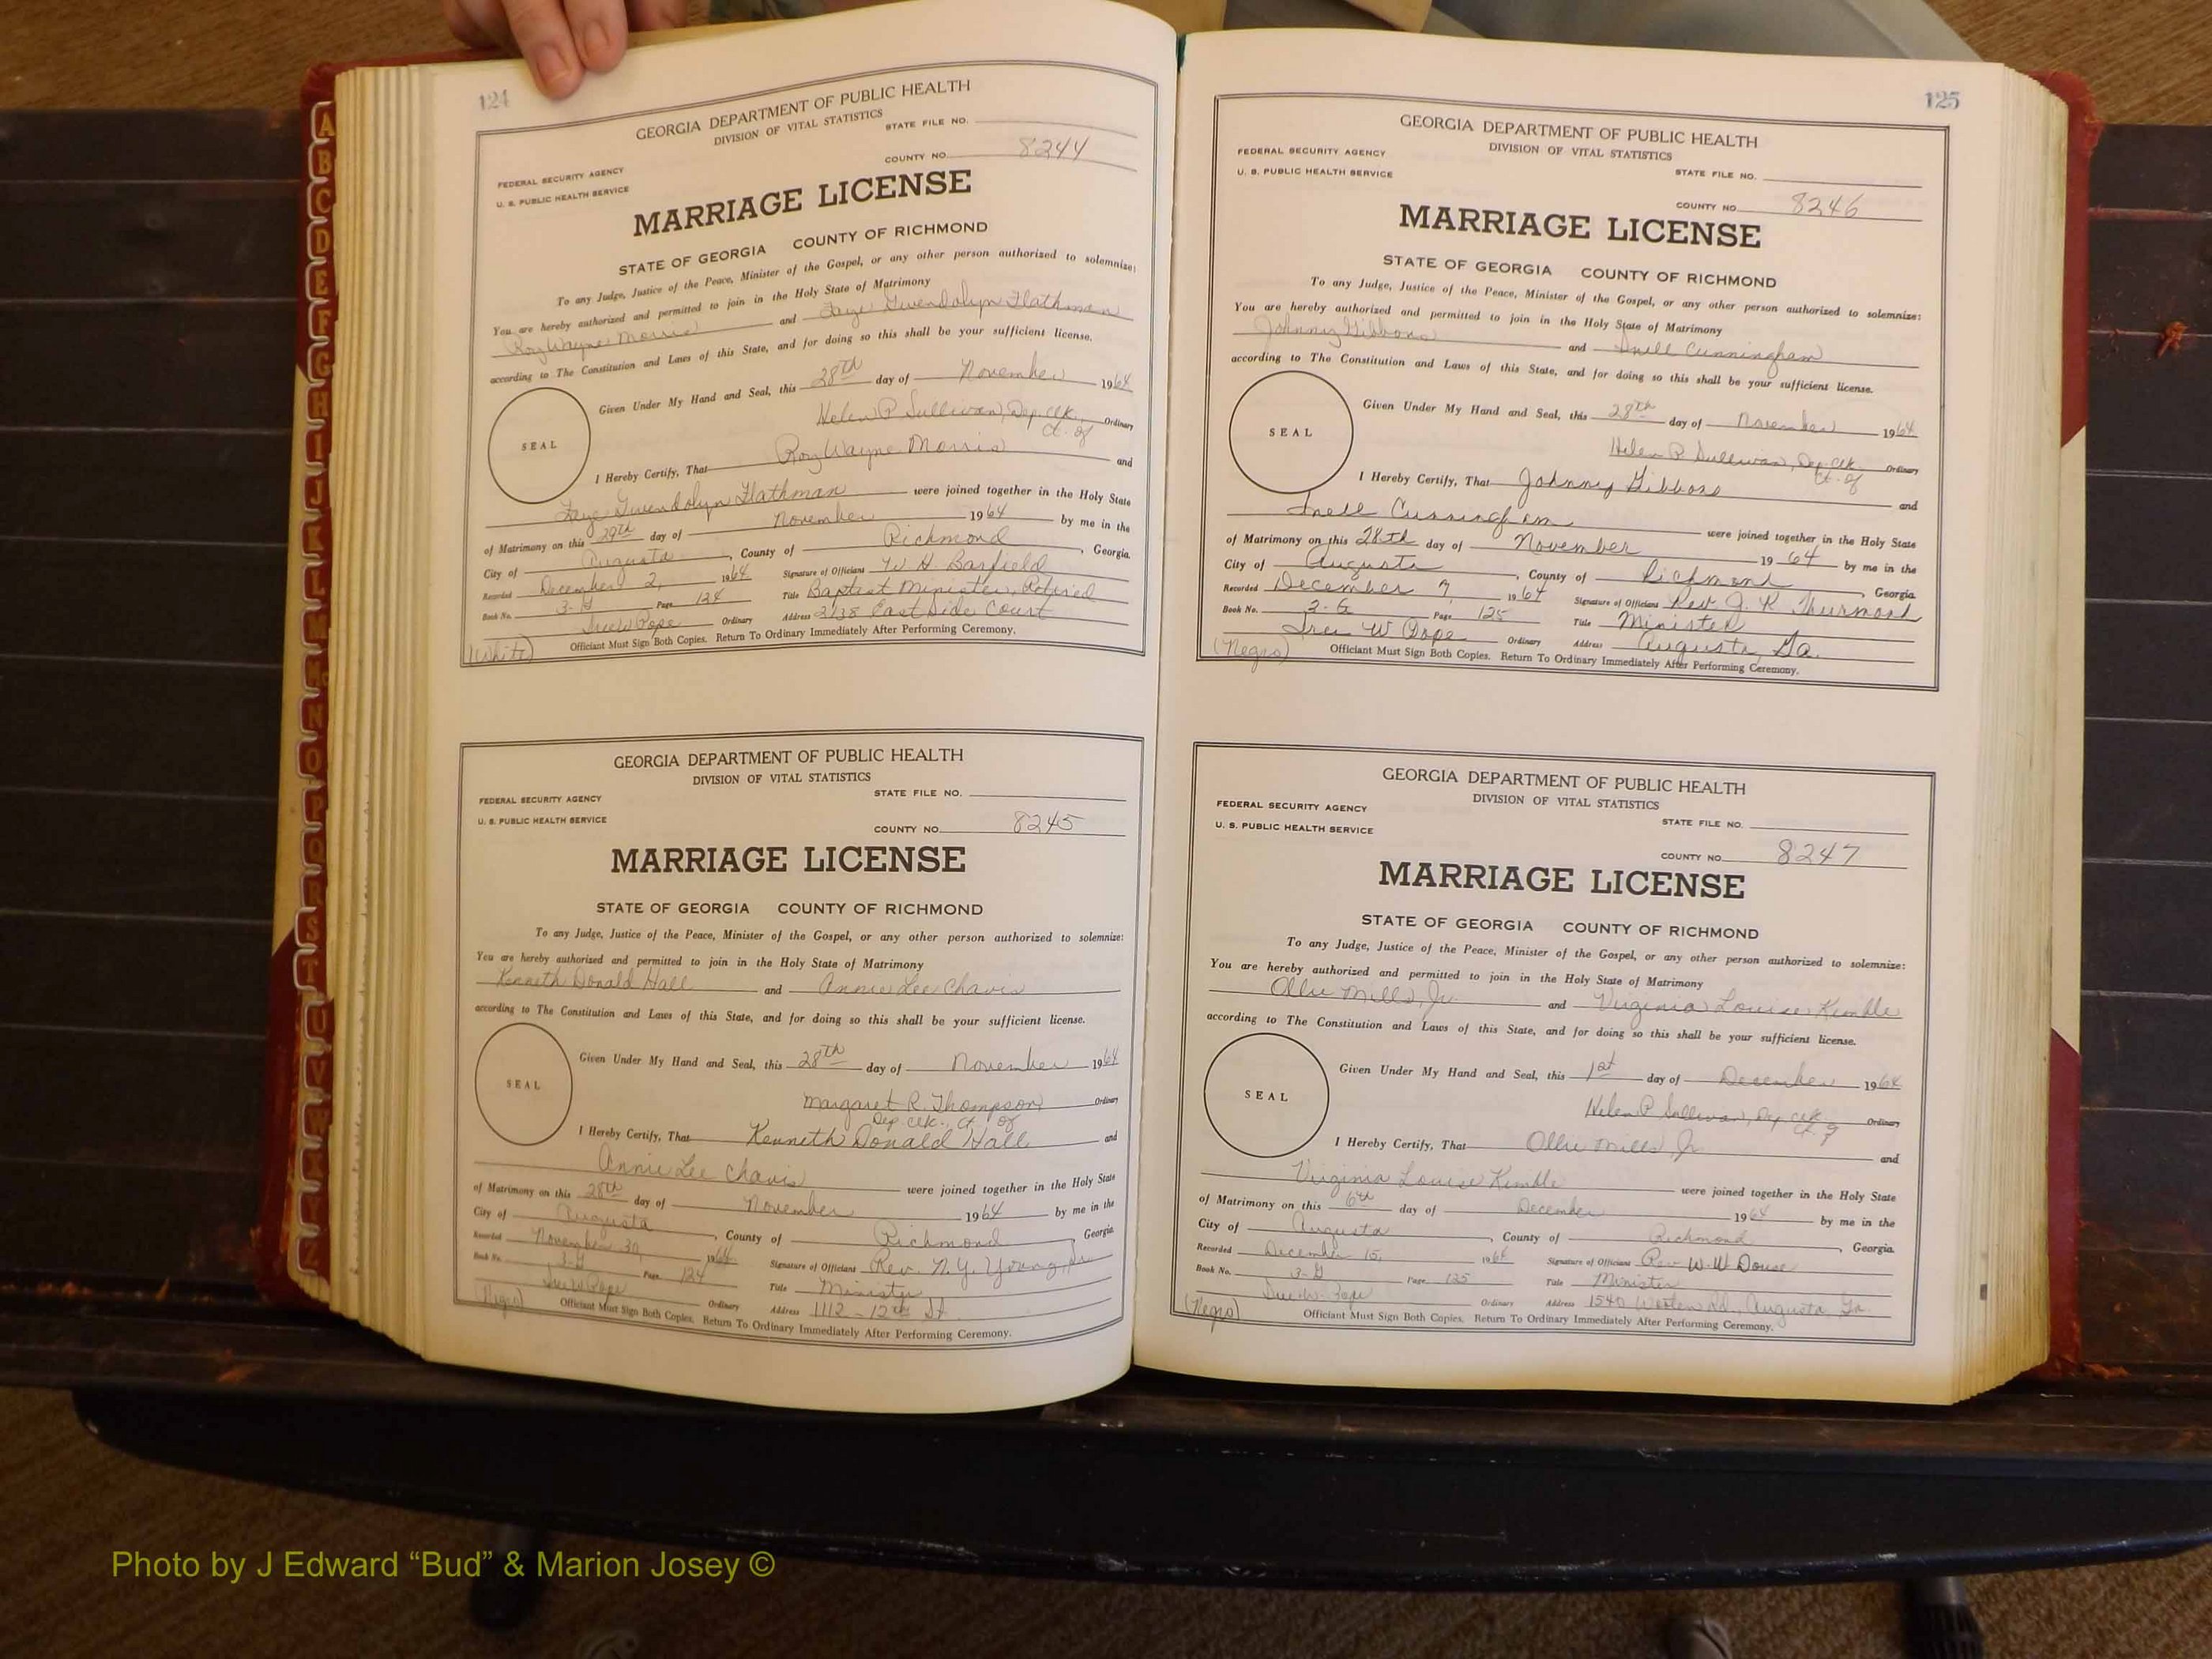 124
GEORGIA DEPARTMENT OF PUBLIC HEALTH
DIVISION OF VITAL STATISTICS
STATE FILE NO.
COUNTY NO. 8244
FEDERAL SECURITY AGENCY
U. S. PUBLIC HEALTH SERVICE
MARRIAGE LICENSE
STATE OF GEORGIA COUNTY OF RICHMOND
To any Judge, Justice of the Peace, Minister of the Gospel, or any other person authorized to solemnize:
You are hereby authorized and permitted to join in the Holy State of Matrimony
Roy Wayne Morris and Faye Gwendolyn Flathman
according to The Constitution and Laws of this State, and for doing so this shall be your sufficient license.
Given Under My Hand and Seal, this 28TH day of November 1964
Helen P Sullivan, Dep. Clk. Ordinary
Ct. of
SEAL
I Hereby Certify, That Roy Wayne Morris and
Faye Gwendolyn Flathman were joined together in the Holy State
of Matrimony on this 29TH day of November 1964 by me in the
City of Augusta, County of Richmond, Georgia.
Recorded December 2, 1964 Signature of Officiant W H Barfield
Book No. 3-G Page 124 Title Baptist Minister, Retired
Sue W Pope Ordinary Address 2138 East Side Court
(White) Officiant Must Sign Both Copies. Return To Ordinary Immediately After Performing Ceremony.
GEORGIA DEPARTMENT OF PUBLIC HEALTH
DIVISION OF VITAL STATISTICS
FEDERAL SECURITY AGENCY
STATE FILE NO.
U. S. PUBLIC HEALTH SERVICE
COUNTY NO. 8245
MARRIAGE LICENSE
STATE OF GEORGIA COUNTY OF RICHMOND
To any Judge, Justice of the Peace, Minister of the Gospel, or any other person authorized to solemnize:
You are hereby authorized and permitted to join in the Holy State of Matrimony
Kenneth Donald Hall and Annie Lee Chavis
according to The Constitution and Laws of this State, and for doing so this shall be your sufficient license.
Given Under My Hand and Seal, this 28TH day of November 1964
SEAL
Margaret R. Thompson Ordinary
Dep Clk., Ct. of
I Hereby Certify, That Kenneth Donald Hall and
Annie Lee Chavis were joined together in the Holy State
of Matrimony on this 28TH day of November 1964 by me in the
City of Augusta, County of Richmond, Georgia
Recorded November 30, 1964 Signature of Officiant Rev. N. Y. Young, Sr.
Book No. 3-G Page 124 Title Minister
Sue W Pope Ordinary Address 1112 - 12th St.
(Negro) Officiant Must Sign Both Copies. Return To Ordinary Immediately After Performing Ceremony.
125
GEORGIA DEPARTMENT OF PUBLIC HEALTH
DIVISION OF VITAL STATISTICS
FEDERAL SECURITY AGENCY
U. S. PUBLIC HEALTH SERVICE
STATE FILE NO.
COUNTY NO. 8246
MARRIAGE LICENSE
STATE OF GEORGIA COUNTY OF RICHMOND
To any Judge, Justice of the Peace, Minister of the Gospel, or any other person authorized to solemnize:
You are hereby authorized and permitted to join in the Holy State of Matrimony
Johnny Gibbons and Inell Cunningham
according to The Constitution and Laws of this State, and for doing so this shall be your sufficient license.
Given Under My Hand and Seal, this 28th day of November 1964
SEAL
Helen P Sullivan, Dep Clk. Ordinary
Ct. of
I Hereby Certify, That Johnny Gibbons and
Inell Cunningham were joined together in the Holy State
of Matrimony on this 28th day of November 1964 by me in the
City of Augusta, County of Richmond, Georgia
Recorded December 7, 1964 Signature of Officiant Rev. J. R. Thurmond
Book No. 3-G Page 125 Title Minister
W Pope Ordinary Address Augusta, Ga.
(Negro) Officiant Must Sign Both Copies. Return To Ordinary Immediately After Performing Ceremony.
GEORGIA DEPARTMENT OF PUBLIC HEALTH
DIVISION OF VITAL STATISTICS
FEDERAL SECURITY AGENCY
STATE FILE NO.
U. S. PUBLIC HEALTH SERVICE
COUNTY NO. 8247
MARRIAGE LICENSE
STATE OF GEORGIA COUNTY OF RICHMOND
To any Judge, Justice of the Peace, Minister of the Gospel, or any other person authorized to solemnize:
You are hereby authorized and permitted to join in the Holy State of Matrimony
Ollie Mills, Jr. and Virginia Louise Kemble
according to The Constitution and Laws of this State, and for doing so this shall be your sufficient license.
Given Under My Hand and Seal, this 1st day of December 1964
SEAL
Helen P Sullivan, Dep Clk. Ordinary
Ct. of
I Hereby Certify, That Ollie Mills, Jr. and
Virginia Louise Kemble were joined together in the Holy State
of Matrimony on this 6th day of December 1964 by me in the
City of Augusta, County of Richmond, Georgia.
Recorded December 15, 1964 Signature of Officiant Rev W. W Douse
Book No. 3-G Page 125 Title Minister
Sue W. Pope Ordinary Address 1540 Wooten Rd., Augusta, Ga.
(Negro) Officiant Must Sign Both Copies. Return To Ordinary Immediately After Performing Ceremony.
A
B
C
D
E
F
G
H
I
J
K
L
M
Mc
N
O
P
Q
R
S
T
U
V
W
Z
Photo by J Edward “Bud” & Marion Josey ©